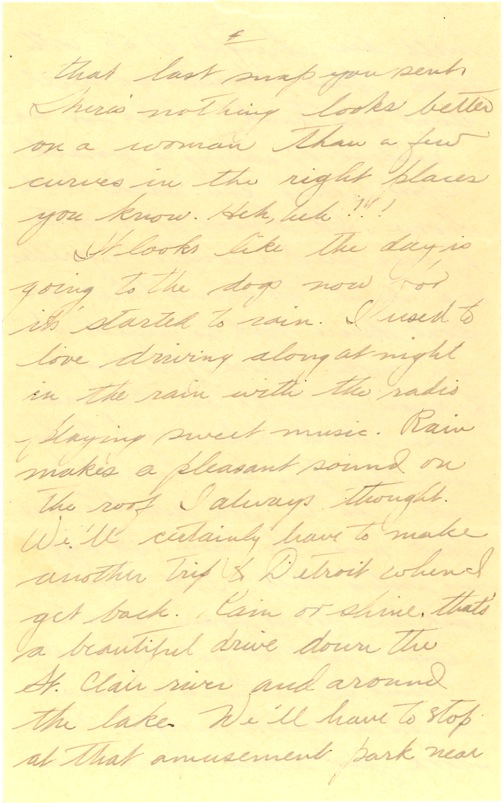 that last snap you sent.
There's nothing looks better
on a woman than a few
curves in the right places
you know. Heh, heh !!!
It looks like the day is
going to the dogs now for
it's started to rain. I used to
love driving along at night
in the rain with the radio
playing sweet music. Rain
makes a pleasant sound on
the roof I always thought.
We'll certainly have to make
another trip to Detroit when I
get back. Rain or shine, that's
a beautiful drive down the
St. Clair river and around
the lake. We'll have to stop
at that amusement park near